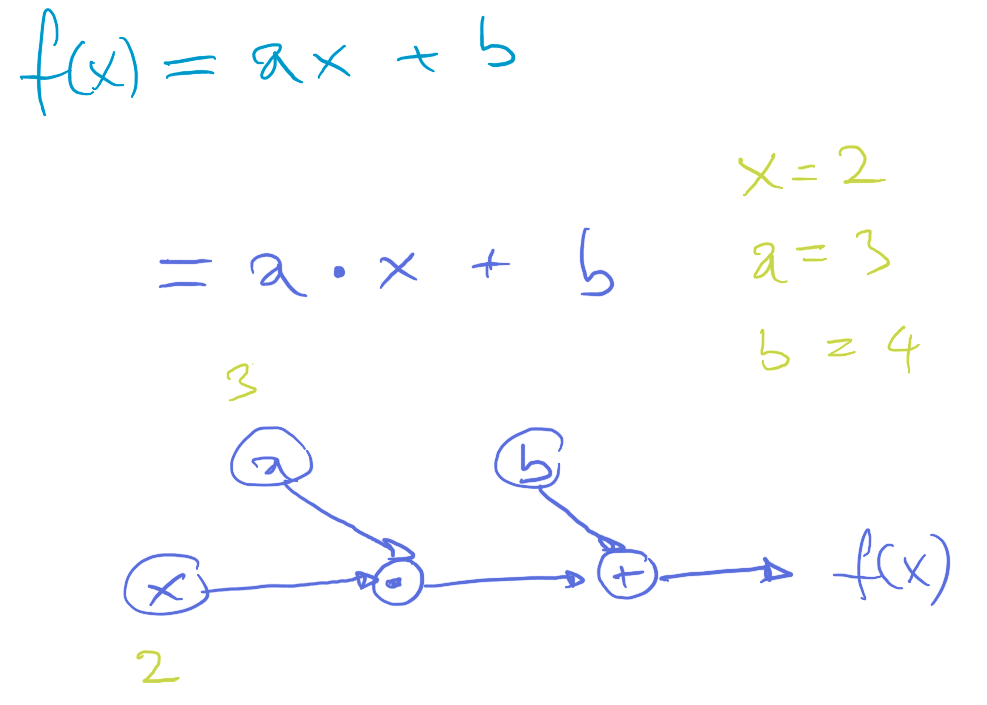 f(x) = ax + b
x = 2
= a · x + b
a = 3
b = 4
3
a
b
x
·
+
f(x)
2